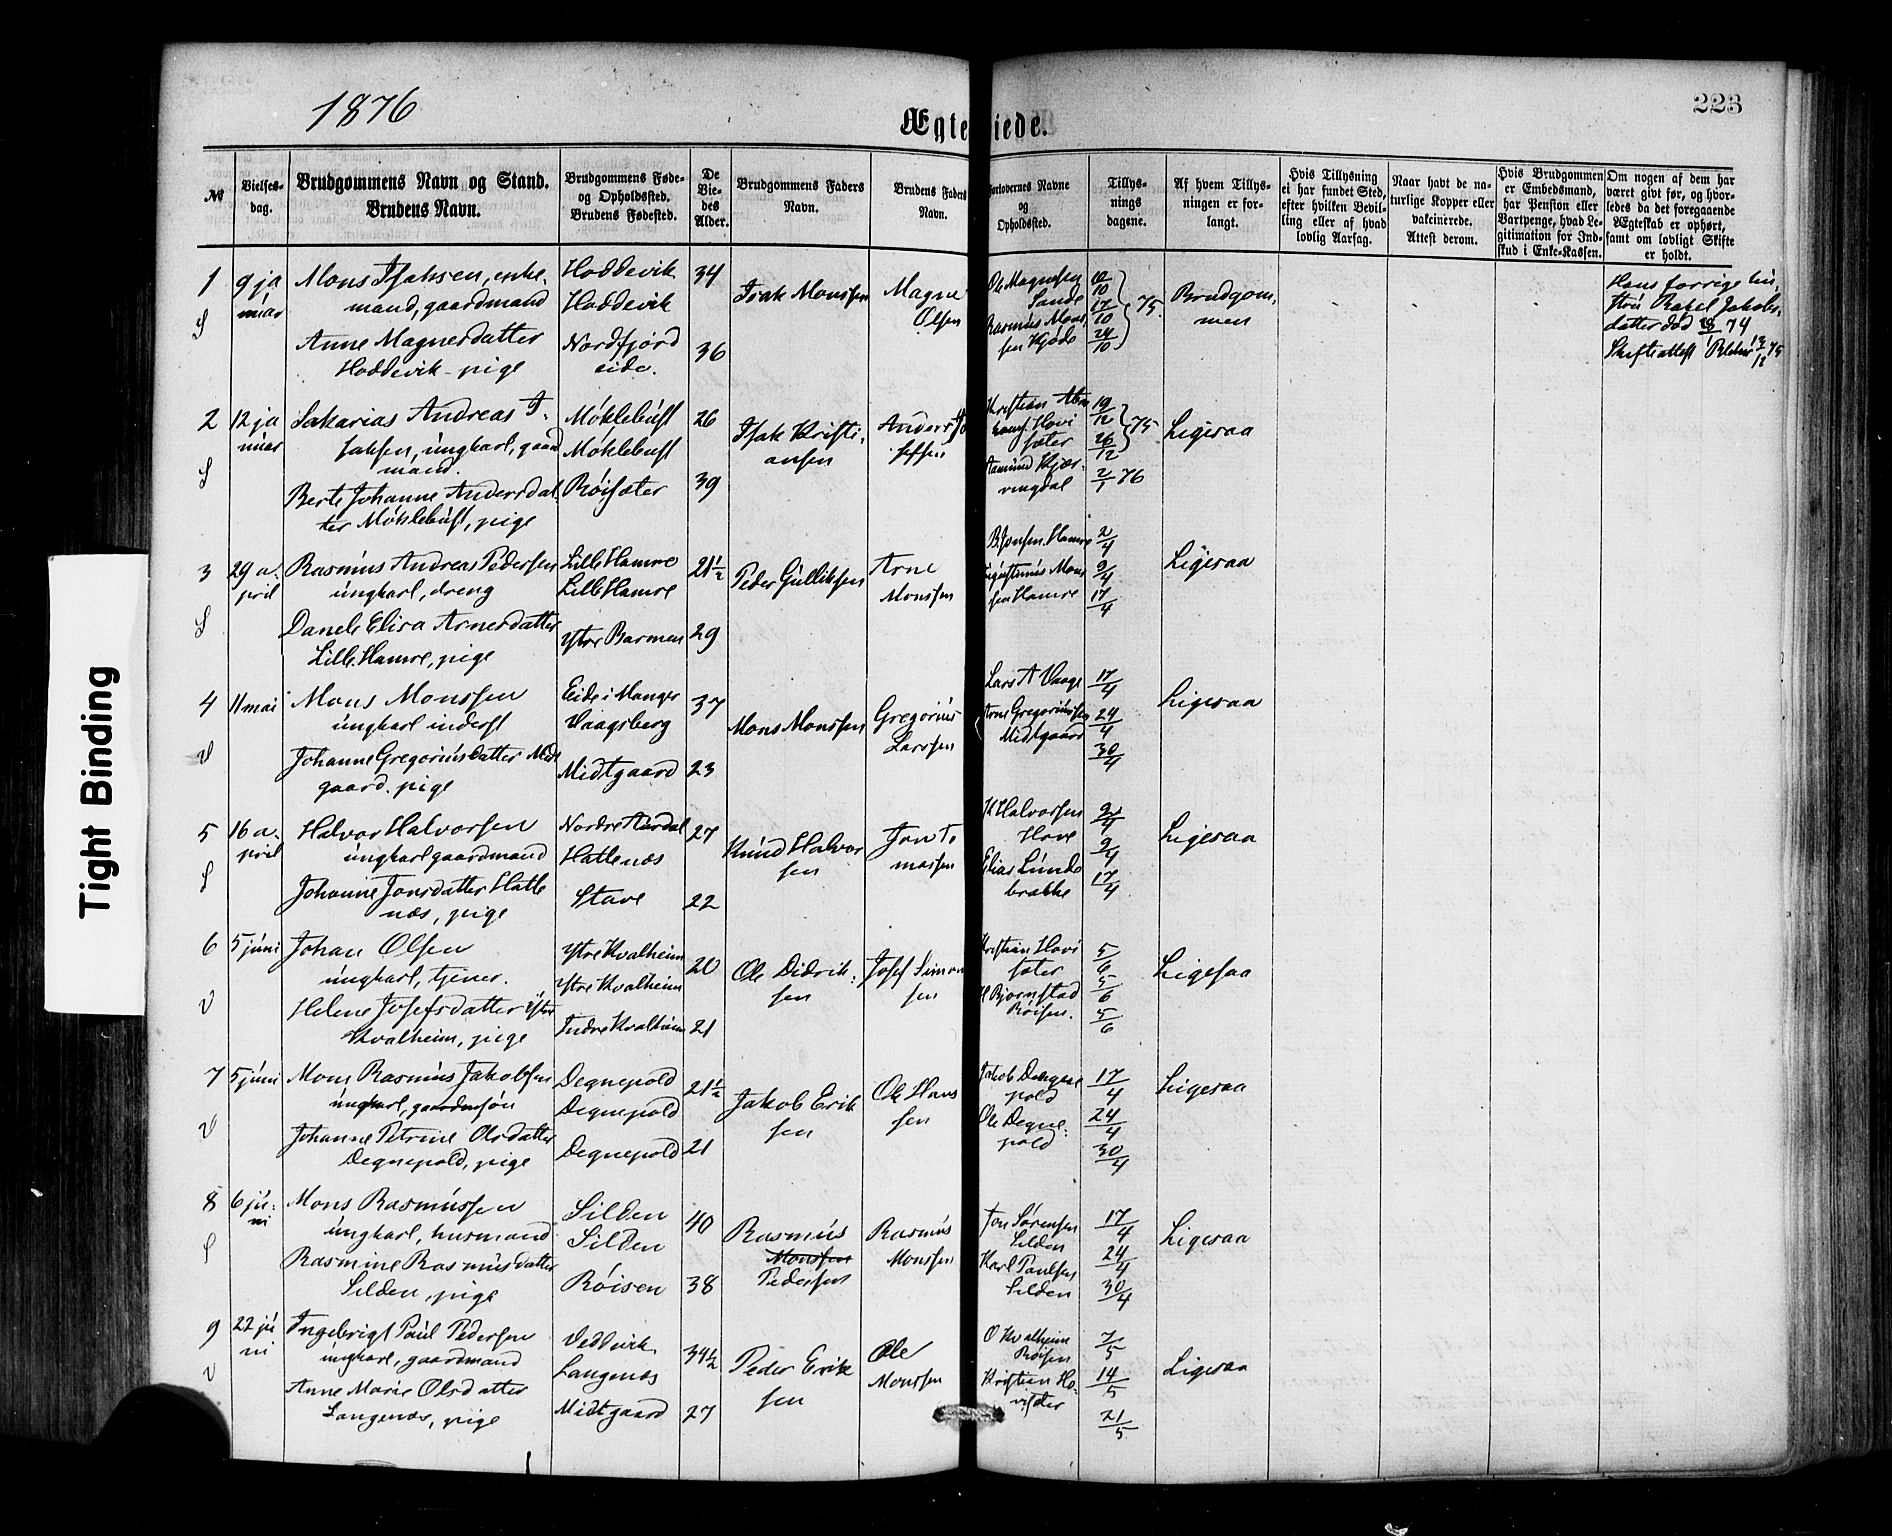 1876
223
Ægteviede.
No
Vielses-
dag.
Brudgommens Navn og Stand.
Brudens Navn.
Brudgommens Føde-
og Opholdssted.
Brudens Fødested.
De
Vie-
des
Alder.
Brudgommens Faders
Navn.
Brudens Faders
Navn.
Forlovernes Navne
og
Opholdssted.
Tillys-
nings
dagene.
Af hvem Tillys-
ningen er for-
langt.
Hvis Tillysning
ei har fundet Sted,
efter hvilken Bevil-
ling eller af hvad
lovlig Aarsag.
Naar havt de na-
turlige Kopper eller
vakcinerede.
Attest derom.
Hvis Brudgommen
er Embedsmand,
har Pension eller
Vartpenge, hvad Le-
gitimation for Ind-
skud i Enke-Kassen.
Om nogen af dem har
været givt før, og hvor-
ledes da det foregaaende
Ægteskab er ophørt,
samt om lovligt Skifte
er holdt.
1
S
9 ja
nuar
Mons Isaksen, enke
mand, gaardmand
Anne Magnesdatter
Hoddevik pige
Hoddevik
Hoddevik
Nordfjord
eide.
34
36
Isak Monssen
Magne
Olsen
Ole Magnesen
Sande
Rasmus Mons
sen Kjøde
10/10
17/10
24/10
75.
Brudgom,
men
Hans forrige hu,
stru Rakel Jakobs,
datter død 74
Skifteattest
2
S
12 ja
nuar
Sakarias Andreas I
saksen, ungkarl, gaard
mand.
Berte Johanne Andersdat
ter Møklebust, pige
Møklebust
Møklebust
Røisæter
26
39
Isak Kristi,
ansen
Anders
Kristian
Hovi
sæter
19/12
26/12
75
2/1 76
Ligesaa
3
S
29 a.
pril
Rasmus Andreas Pedersen
ungkarl, dreng
Danele Elisa Arnesdatter
Lille Hamre, pige
Lille Hamre
Lille Hamre
Ytre Barmen
21½
29
Peder Gulliksen
Arne
Monssen
Hamre
Mons
sen Hamre
2/4
9/4
17/4
Ligesaa
4
V
11 mai
Mons Monssen
ungkarl inderst
Johanne Gregoriusdatter Midt
gaard. pige
Eide i Manger
Vaagsberg
Midtgaard
37
23
Mons Monssen
Gregorius
Larssen
Lars A Vaage
Arne Gregoriussen
Midtgaard
17/4
24/4
30/4
Ligesaa
5
S
16 a.
pril
Halvor Halvorsen
ungkarl gaardmand
Johanne Jonsdatter Hatle
næs, pige
Nordre Aardal
Hatlenæs
Stave
27
22
Knud Halvor
sen
Jon To
massen
K Halvorsen
Hove
Elias Lunde
brække
2/4
9/4
17/4
Ligesaa
6
V
5 juni
Johan Olsen
ungkarl, tjener.
Helene Josefsdatter Ytre
Kvalheim, pige
Ytre Kvalheim
Ytre Kvalheim
Indre Kvalheim
20
21
Ole Didrik
sen
Josef Simon
sen
Kristian Hovi
sæter
H Bjørnstad
Røisen.
5/6
5/6
5/6
Ligesaa
7
V
5 juni
Mons Rasmus Jakobsen
ungkarl, gaardmsøn
Johanne Petrine Olsdatter
Degnepold, pige
Degnepold
Degnepold
Degnepold
21½
21
Jakob Erik
sen
Ole Hans
sen
Jakob Degne
pold
Ole Degne
pold
17/4
24/4
30/4
Ligesaa
8
S
6 ju
ni
Mons Rasmussen
ungkarl, husmand
Rasmine Rasmusdatter
Silden, pige
Silden
Silden
Røisen
40
38
Rasmus
Monssen
Pedersen
Rasmus
Monssen
Jon Sørensen
Silden
Karl Paulsen
Silden
17/4
24/4
30/4
Ligesaa
9
V
22 ju
ni
Ingebrigt Paul Pedersen
ungkarl, gaardmand
Anne Marie Olsdatter
Langenæs, pige
Vedvik
Langenæs
Midtgaard
34½
27
Peder Erik
sen
Ole
Monssen
O Kvalheim
Røisen
Kristian Ho,
visæter
7/5
14/5
21/5
Ligesaa
Tight Binding